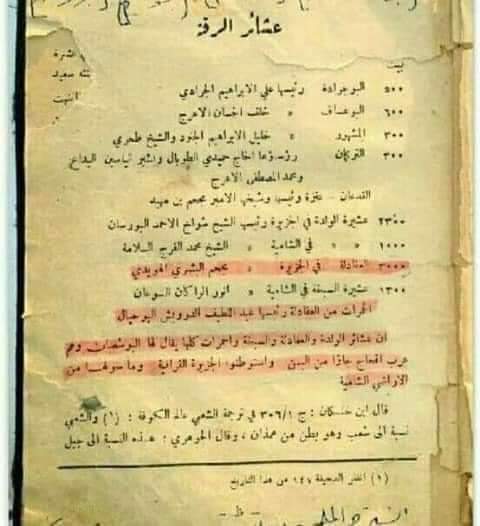 عشائر الرقة
بيت
٥٠٠ البوجرادة رئيسها علي الابراهيم الجرادي
٦٠٠ البوعساف « خلف الحسان الاعرج
٣٠٠ المشهور « خليل الابراهيم الجنود والشيخ طحري
٣٠٠ التركمان رؤساؤها الحاج حميدي الطوبال وبشير لياسين البداع
ومحمد المصطفى الاعرج
الفدعان – عنزة ورئيسها وشيخها الامير مجحم بن مهيد
٢٣٠٠ عشيرة الولدة في الجزيرة رئيسها الشيخ شواخ الاحمد البورسان
١٠٠٠ « « في الشامية « الشيخ محمد الفرج السلامة
٣٠٠٠ العفادلة في الجزيرة « مجحم البشري الهويدي
١٣٠٠ عشيرة السبخة في الشامية « انور الراكان السوعان
المجرات من العفادلة رئيسها عبد اللطيف الدرويش
ان عشائر الولدة والعفادلة والسبخة والمجرات كلها يقال لها البوشعبان وهم
عرب اقحاح جاؤا من اليمن واستوطنوا الجزيرة الفراتية وما سوغها من
الاراضي الشامية
قال ابن خلكان : ج ٣٠٦/١ في ترجمة الشعبي عالم الكوفة : (١) والشعبي
نسبة الى شعب وهو بطن من همدان ، وقال الجوهري : هذه النسبة الى جبل
(١) انظر الصحيفة ١٤٧ من هذا التاريخ
– ظ –